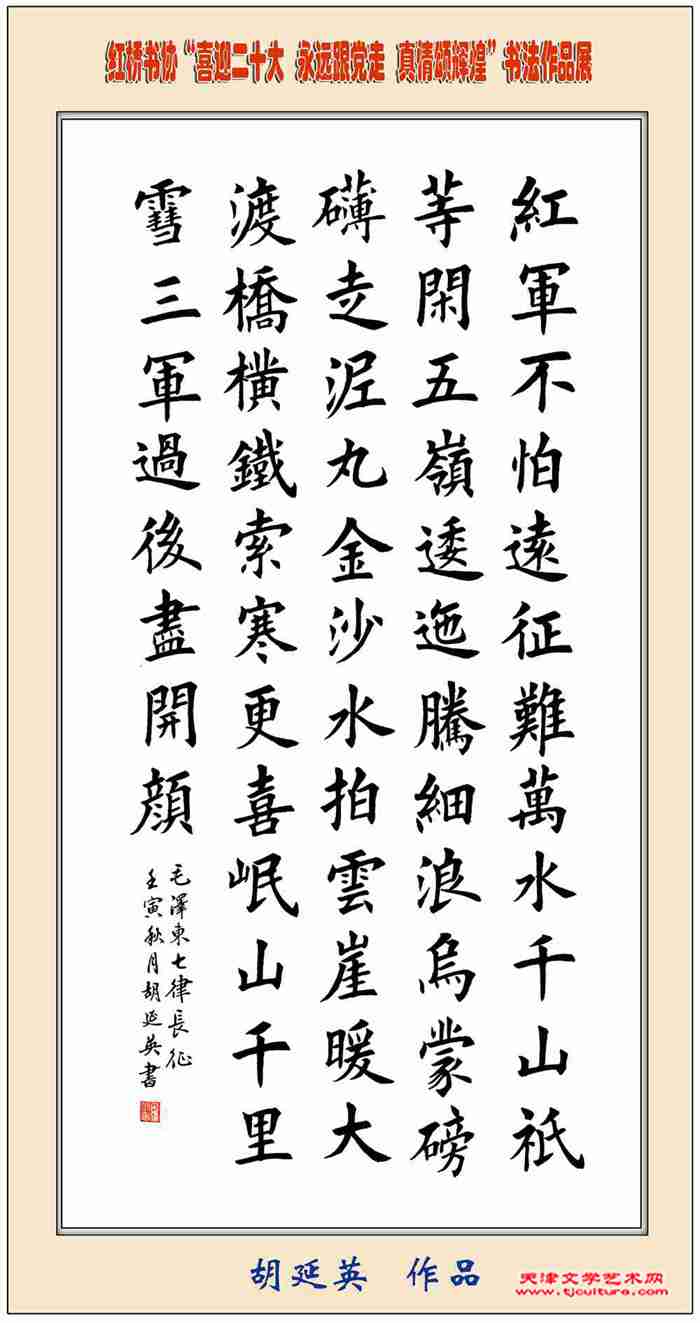 红桥书协“喜迎二十大 永远跟党走 真情颂辉煌”书法作品展
紅軍不怕遠征難萬水千山祇
等閑五嶺逶迤騰細浪烏蒙磅
礴走泥丸金沙水拍雲崖暖大
渡橋橫鐵索寒更喜岷山千里
雪三軍過後盡開顔
毛澤東七律長征
壬寅秋月胡延英書
胡延英 作品
天津文学艺术网
www.tjculture.com